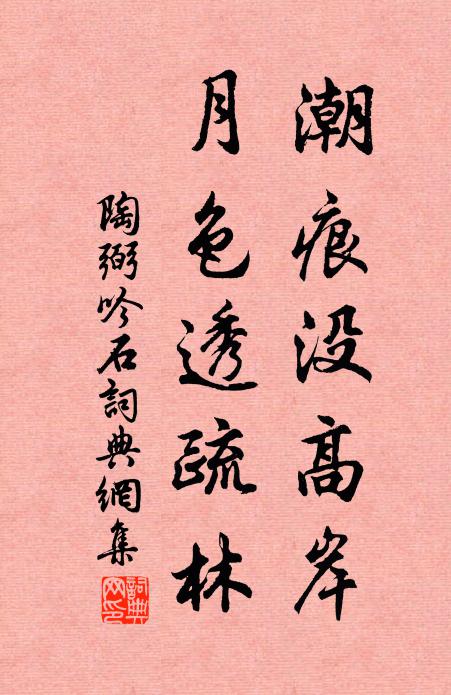 潮痕没高岸
月色透疏林
陶弼吟石詞典網集
詞典網印